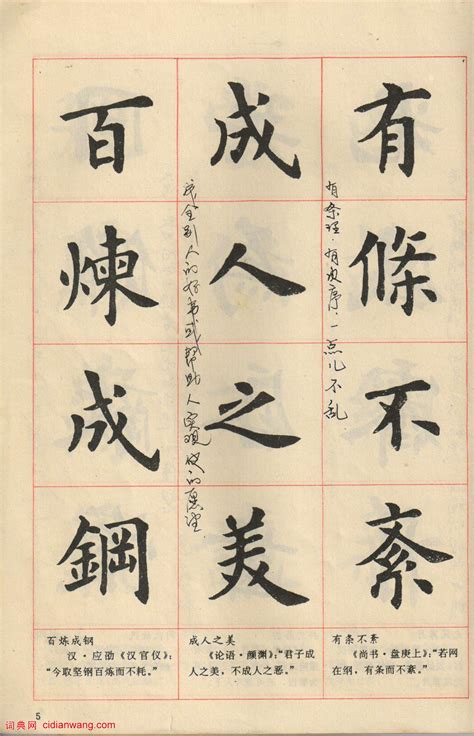 有條不紊
有条理.有次序.一点儿不乱
成人之美
成全别人的好事或帮助人实现他的愿望
百煉成鋼
有条不紊
《尚书·盘庚上》:“若网
在纲,有条而不紊。”
成人之美
《论语·颜渊》:“君子成
人之美,不成人之恶。”
百炼成钢
汉·应劭《汉官仪》:
“今取坚钢百炼而不耗。”
5
词典网 cidianwang.com